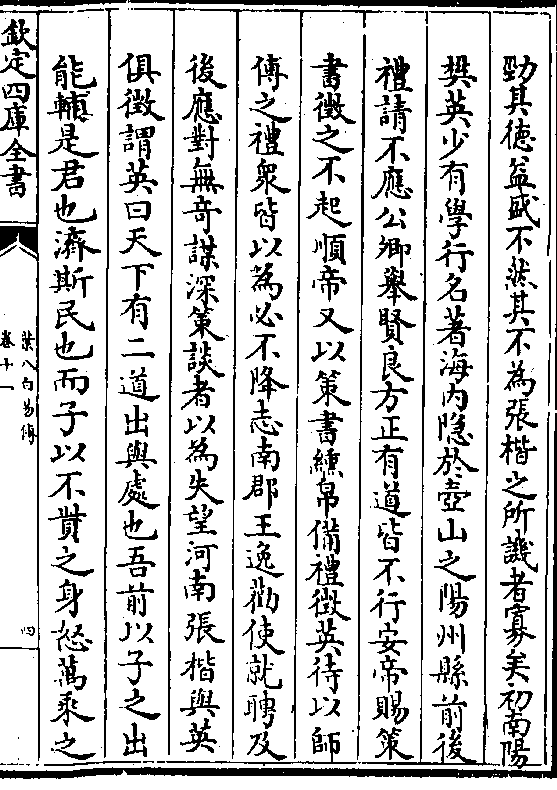 勁其德益盛不然其不為張楷之所譏者寡矣初南陽
樊英少有學行名著海内隐於壺山之陽州縣前後
禮請不應公卿舉賢良方正有道皆不行安帝賜策
書徵之不起順帝又以策書纁帛備禮徵英待以師
傅之禮衆皆以為必不降志南郡王逸勸使就聘及
後應對無竒謀深策談者以為失望河南張楷與英
俱徵謂英曰天下有二道出與處也吾前以子之出
能輔是君也濟斯民也而子以不貲之身怒萬乘之
欽定四庫全書
葉八白易傳
卷十一
四